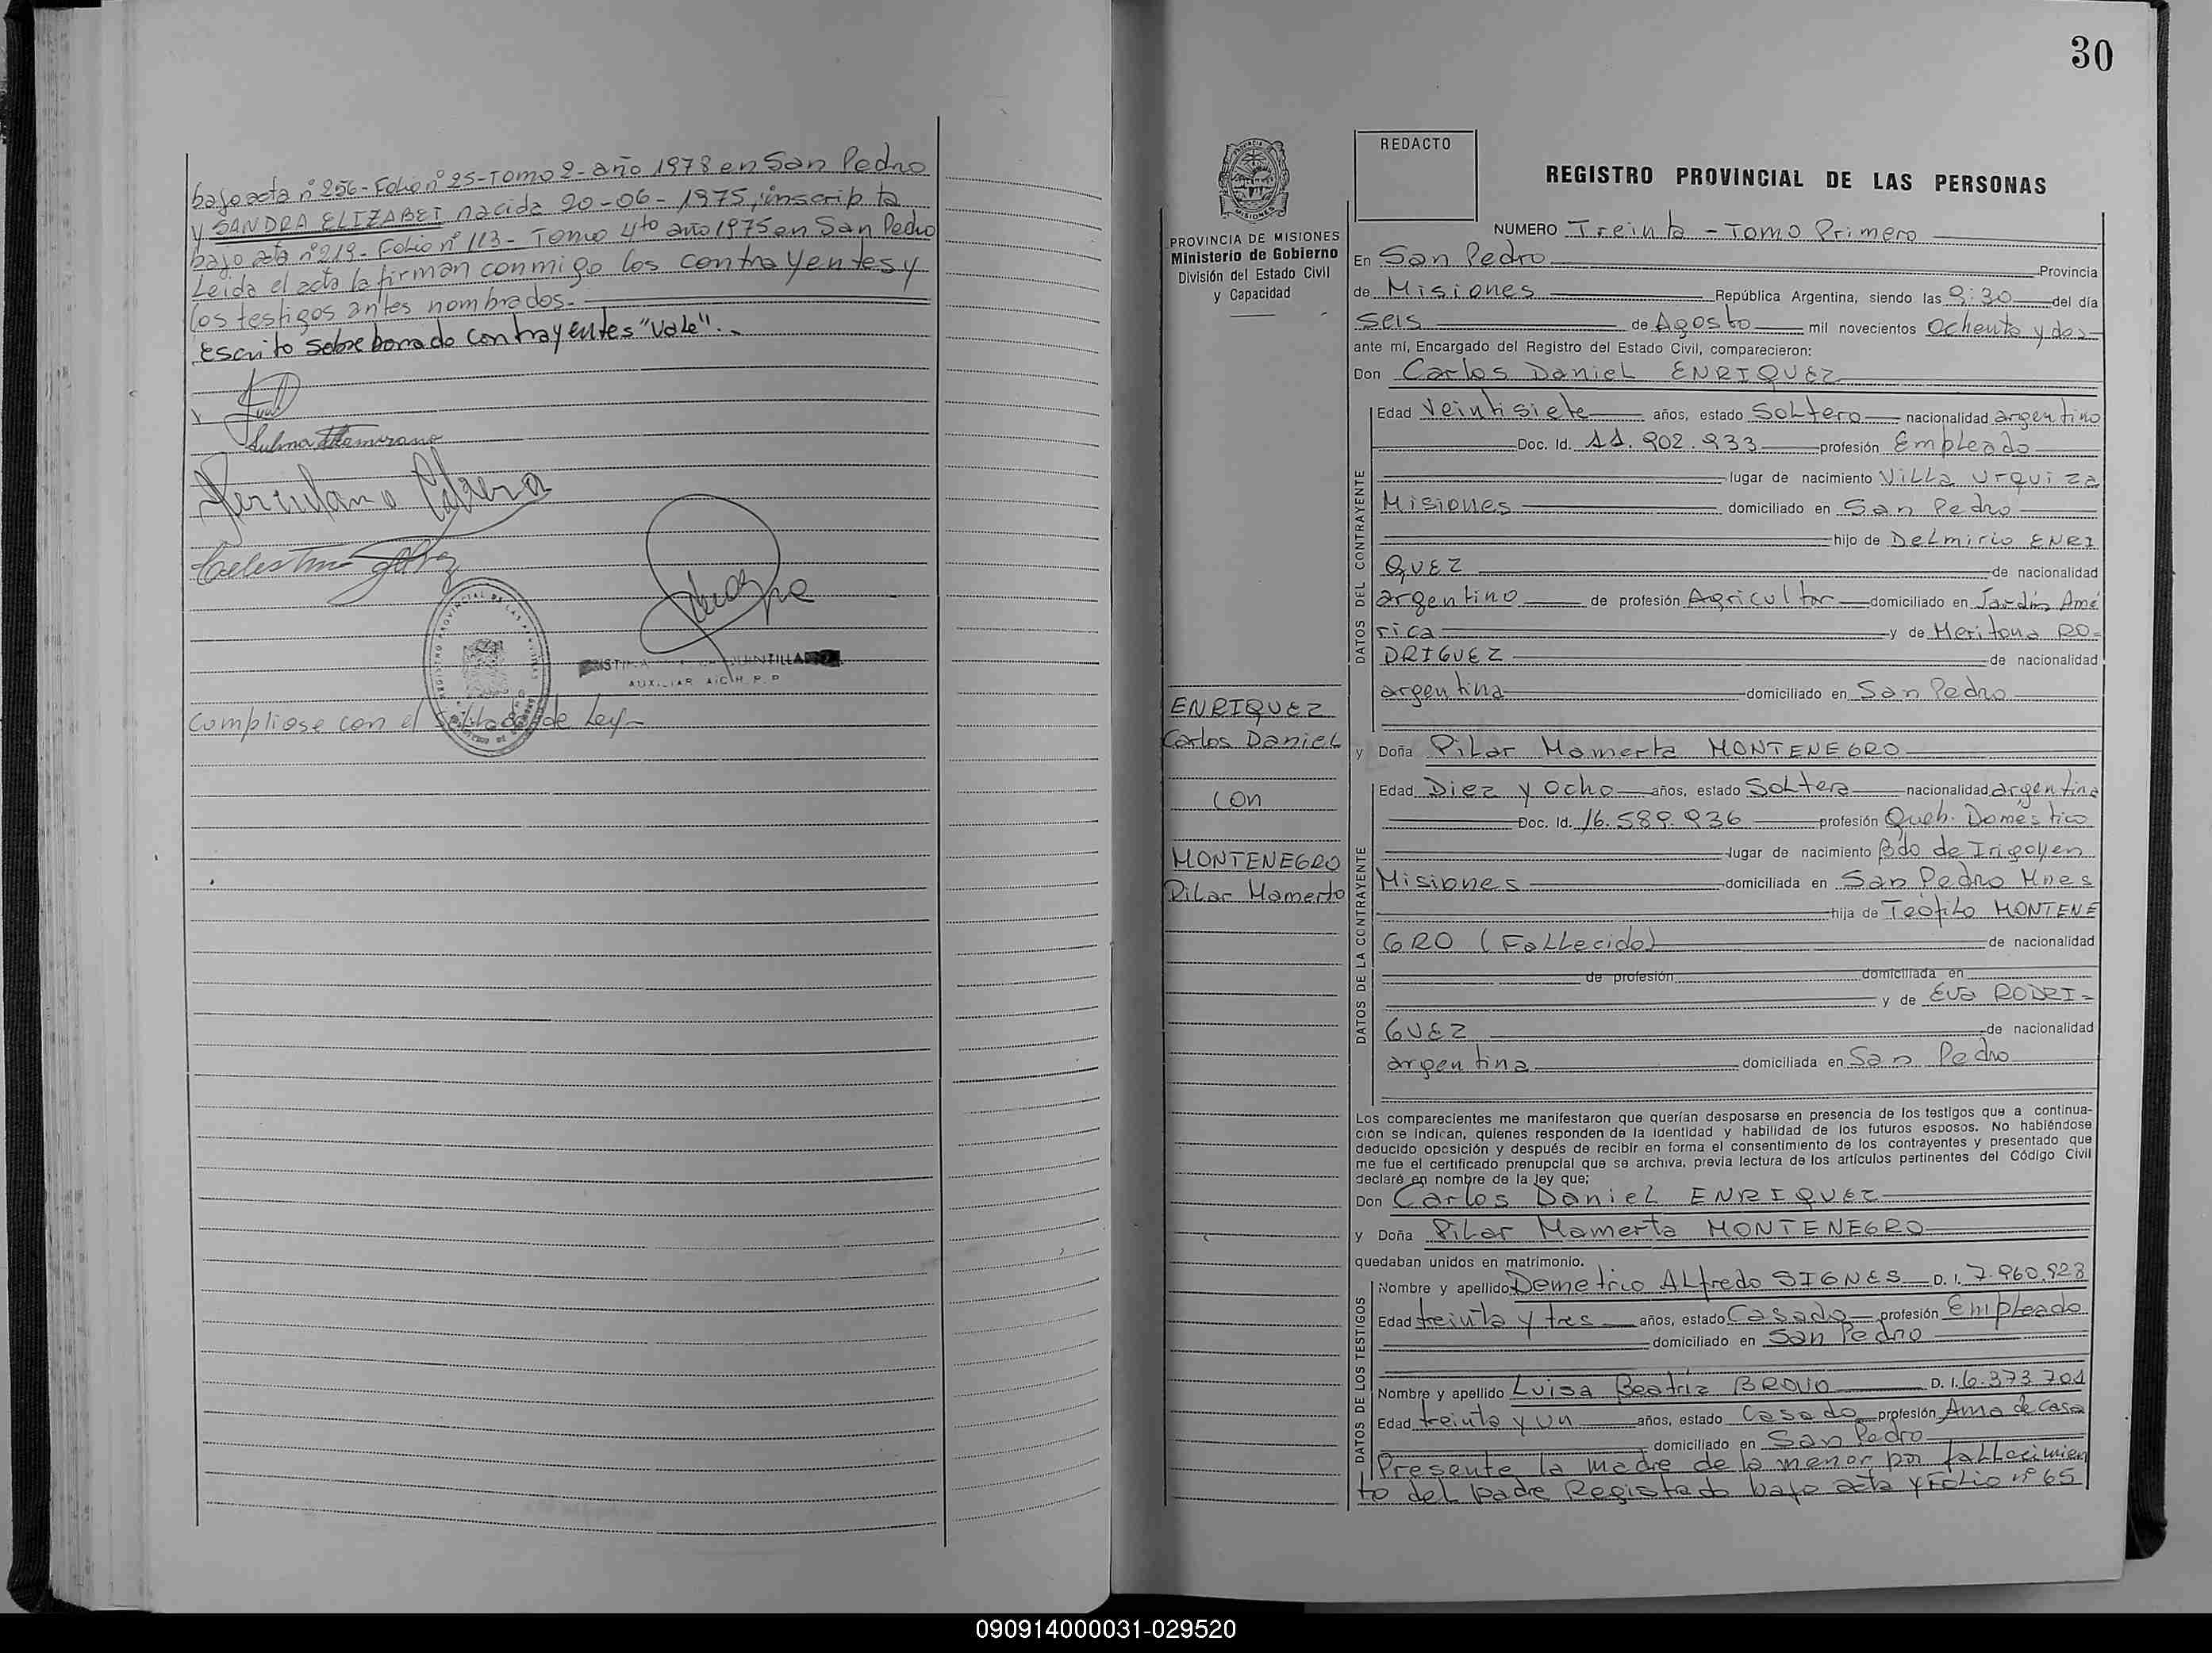 bajo acta nº 256 - Folio nº 25 - Tomo 2 - año 1978 en San Pedro
y SANDRA ELIZABET nacida 20-06-1975, inscripta
bajo acta nº 219 - Folio nº 113 - Tomo 4to año 1975 en San Pedro
Leida el acta la firman conmigo los contrayentes y
los testigos antes nombrados.-
Escrito sobre borrado contrayentes "Vale".-
Herculano Cabrera
Celestino
AUXILIAR
Cumpliose con el sellado de Ley-
30
REDACTO
REGISTRO PROVINCIAL DE LAS PERSONAS
PROVINCIA DE MISIONES
Ministerio de Gobierno
División del Estado Civil
y Capacidad
NUMERO Treinta - Tomo Primero
En San Pedro Provincia
de Misiones República Argentina, siendo las 9:30 del día
Seis de Agosto mil novecientos Ochenta y dos
ante mí, Encargado del Registro del Estado Civil, comparecieron:
Don Carlos Daniel ENRIQUEZ
DATOS DEL CONTRAYENTE
Edad Veintisiete años, estado Soltero nacionalidad argentino
Doc. Id. 11.902.933 profesión Empleado
lugar de nacimiento Villa Urquiza
Misiones domiciliado en San Pedro
hijo de Delmirio ENRI
QUEZ de nacionalidad
argentino de profesión Agricultor domiciliado en Jardín Amé
rica y de Meritona RO-
DRIGUEZ de nacionalidad
argentina domiciliado en San Pedro
ENRIQUEZ
Carlos Daniel
con
MONTENEGRO
Pilar Mamerto
y Doña Pilar Mamerta MONTENEGRO
DATOS DE LA CONTRAYENTE
Edad Diez y Ocho años, estado Soltera nacionalidad argentina
Doc. Id. 16.589.936 profesión Queh. Doméstico
lugar de nacimiento Bdo de Irigoyen
Misiones domiciliada en San Pedro Mnes
hija de Teófilo MONTENE
GRO (Fallecido) de nacionalidad
de profesión domiciliada en
y de Eva RODRI-
GUEZ de nacionalidad
argentina domiciliada en San Pedro
Los comparecientes me manifestaron que querían desposarse en presencia de los testigos que a continua-
ción se indican, quienes responden de la identidad y habilidad de los futuros esposos. No habiéndose
deducido oposición y después de recibir en forma el consentimiento de los contrayentes y presentado que
me fue el certificado prenupcial que se archiva, previa lectura de los artículos pertinentes del Código Civil
declaré en nombre de la ley que;
Don Carlos Daniel ENRIQUEZ
y Doña Pilar Mamerta MONTENEGRO
quedaban unidos en matrimonio.
DATOS DE LOS TESTIGOS
Nombre y apellido Demetrio Alfredo SIGNES D. I. 7.960.923
Edad treinta y tres años, estado Casado profesión Empleado
domiciliado en San Pedro
Nombre y apellido Luisa Beatríz D. I. 6.373.701
Edad treinta y un años, estado Casado profesión Ama de Casa
domiciliado en San Pedro
Presente la madre de la menor por fallecimien
to del padre Registrado bajo acta y Folio nº 65
090914000031-029520